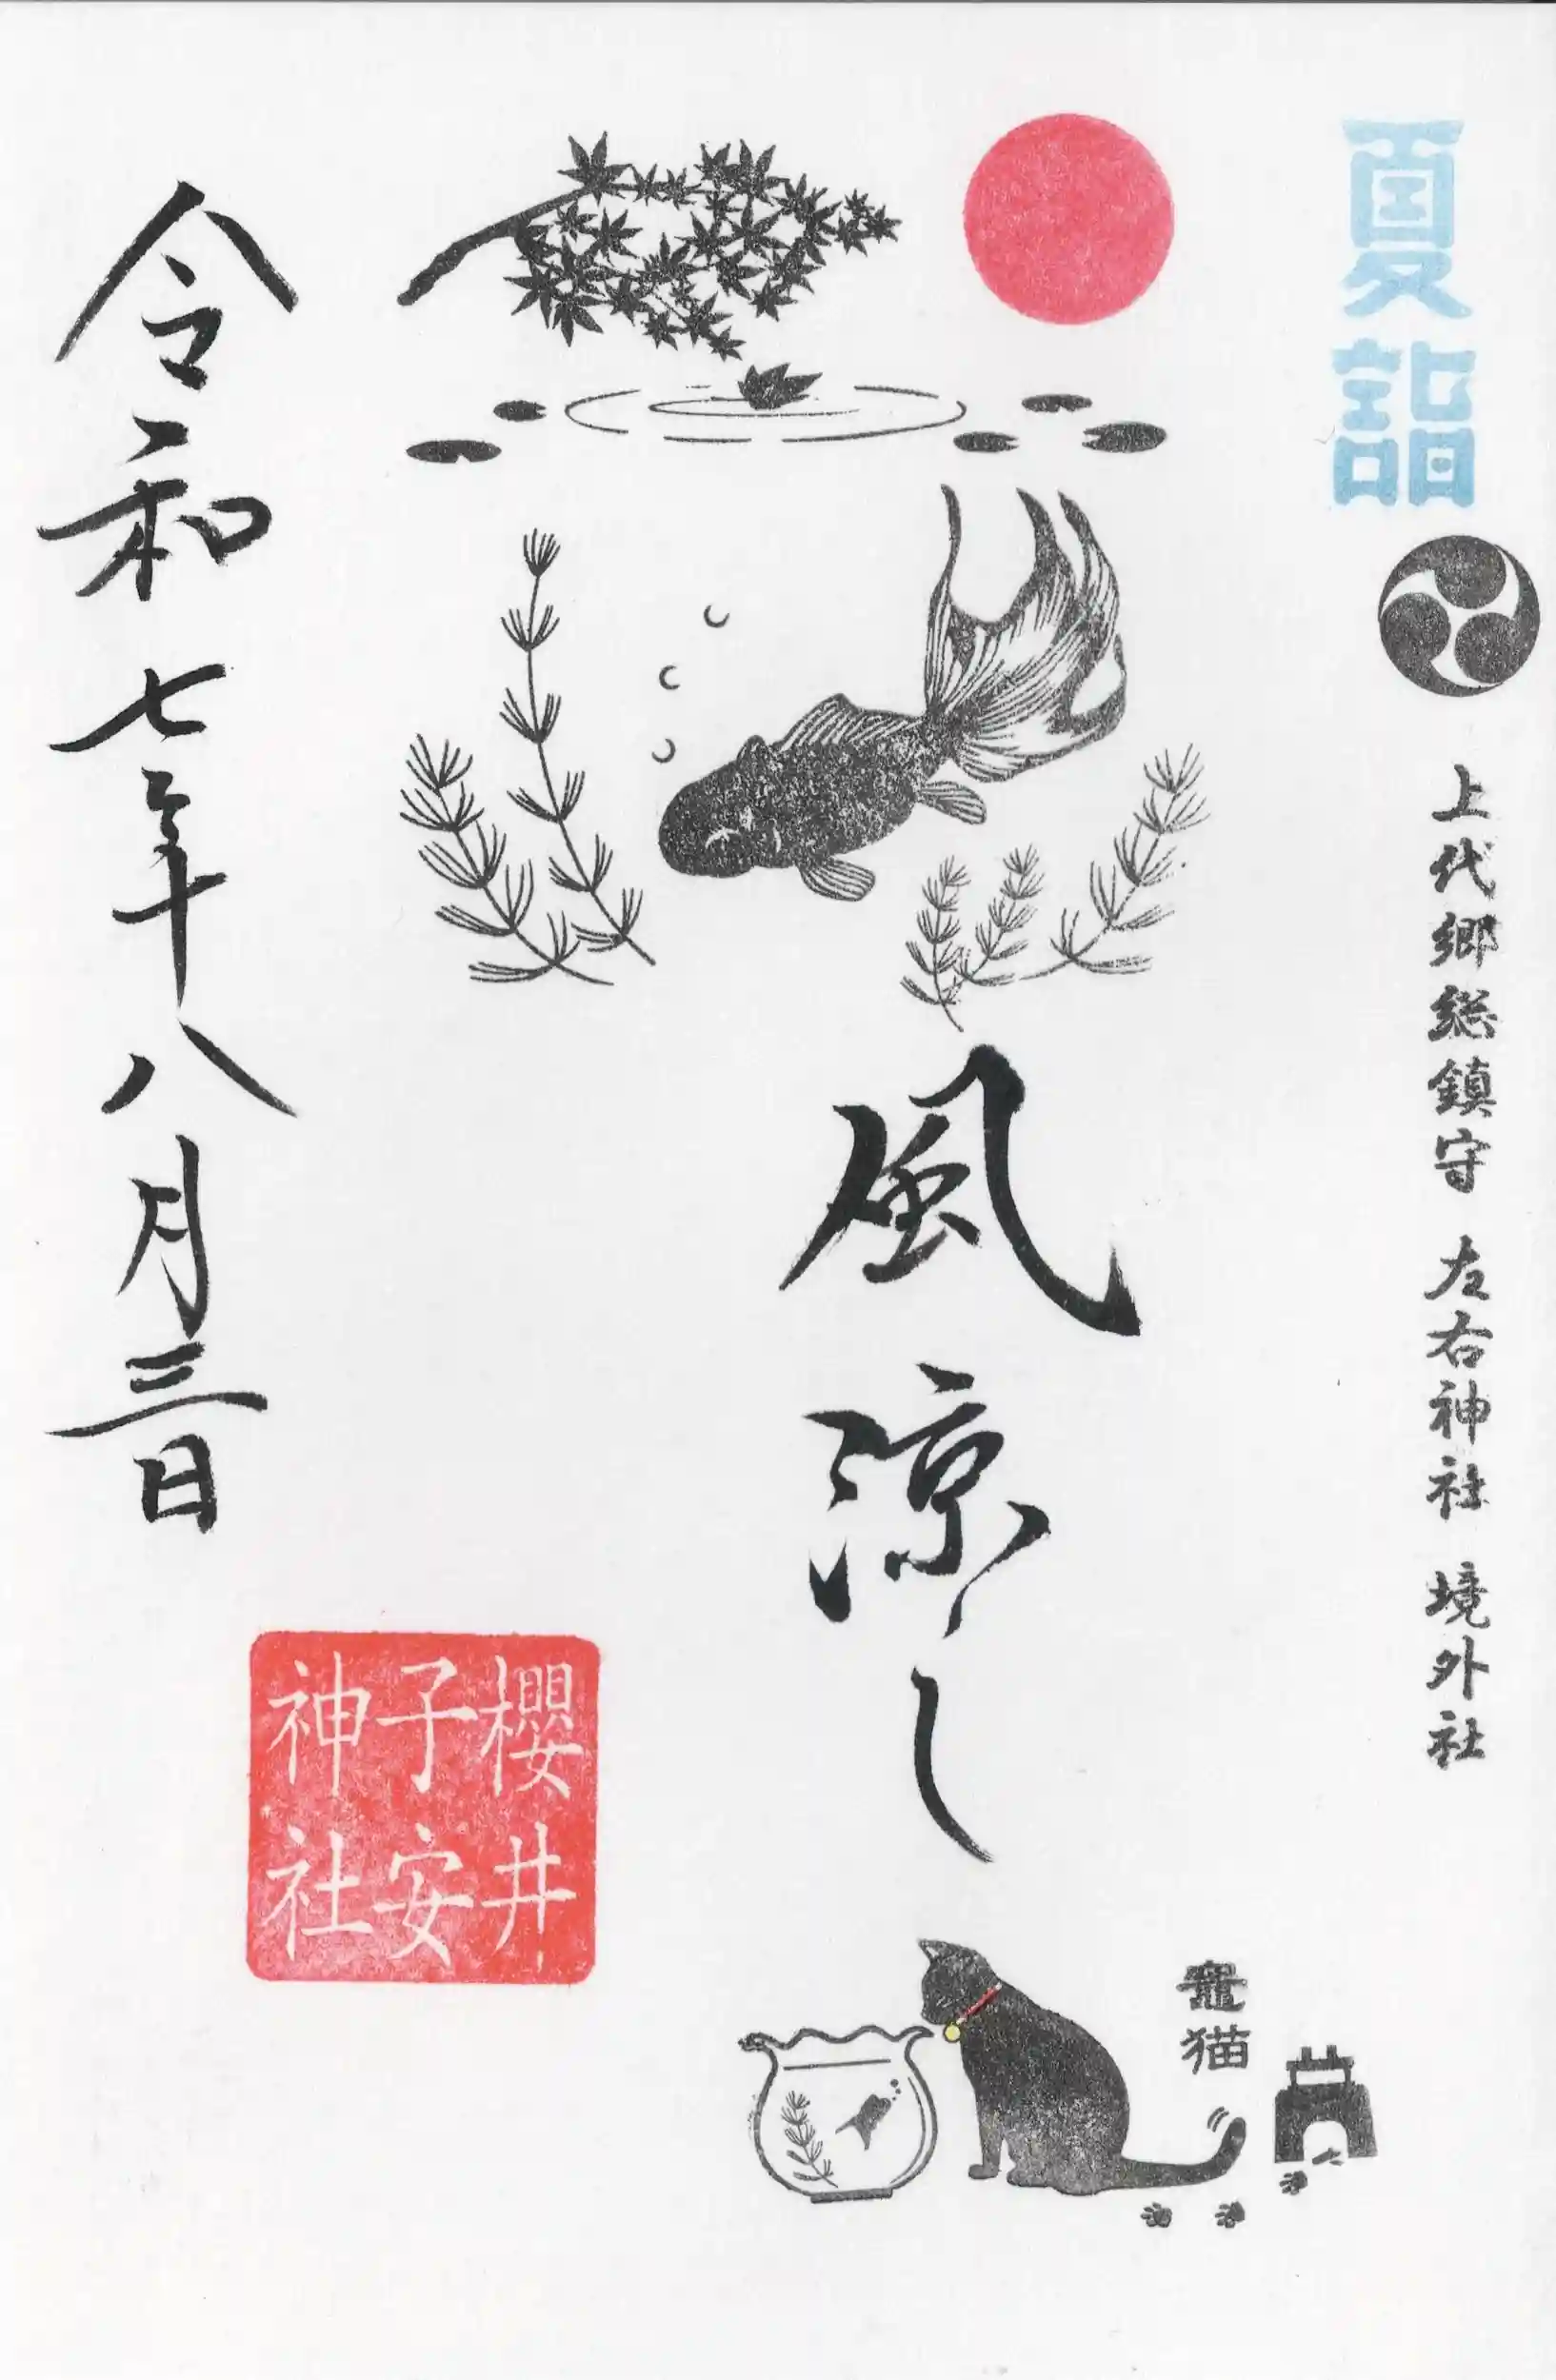 夏詣
上代郷総鎮守 左右神社 境外社
風涼し
竈猫
櫻井
子安
神社
令和七年八月三日